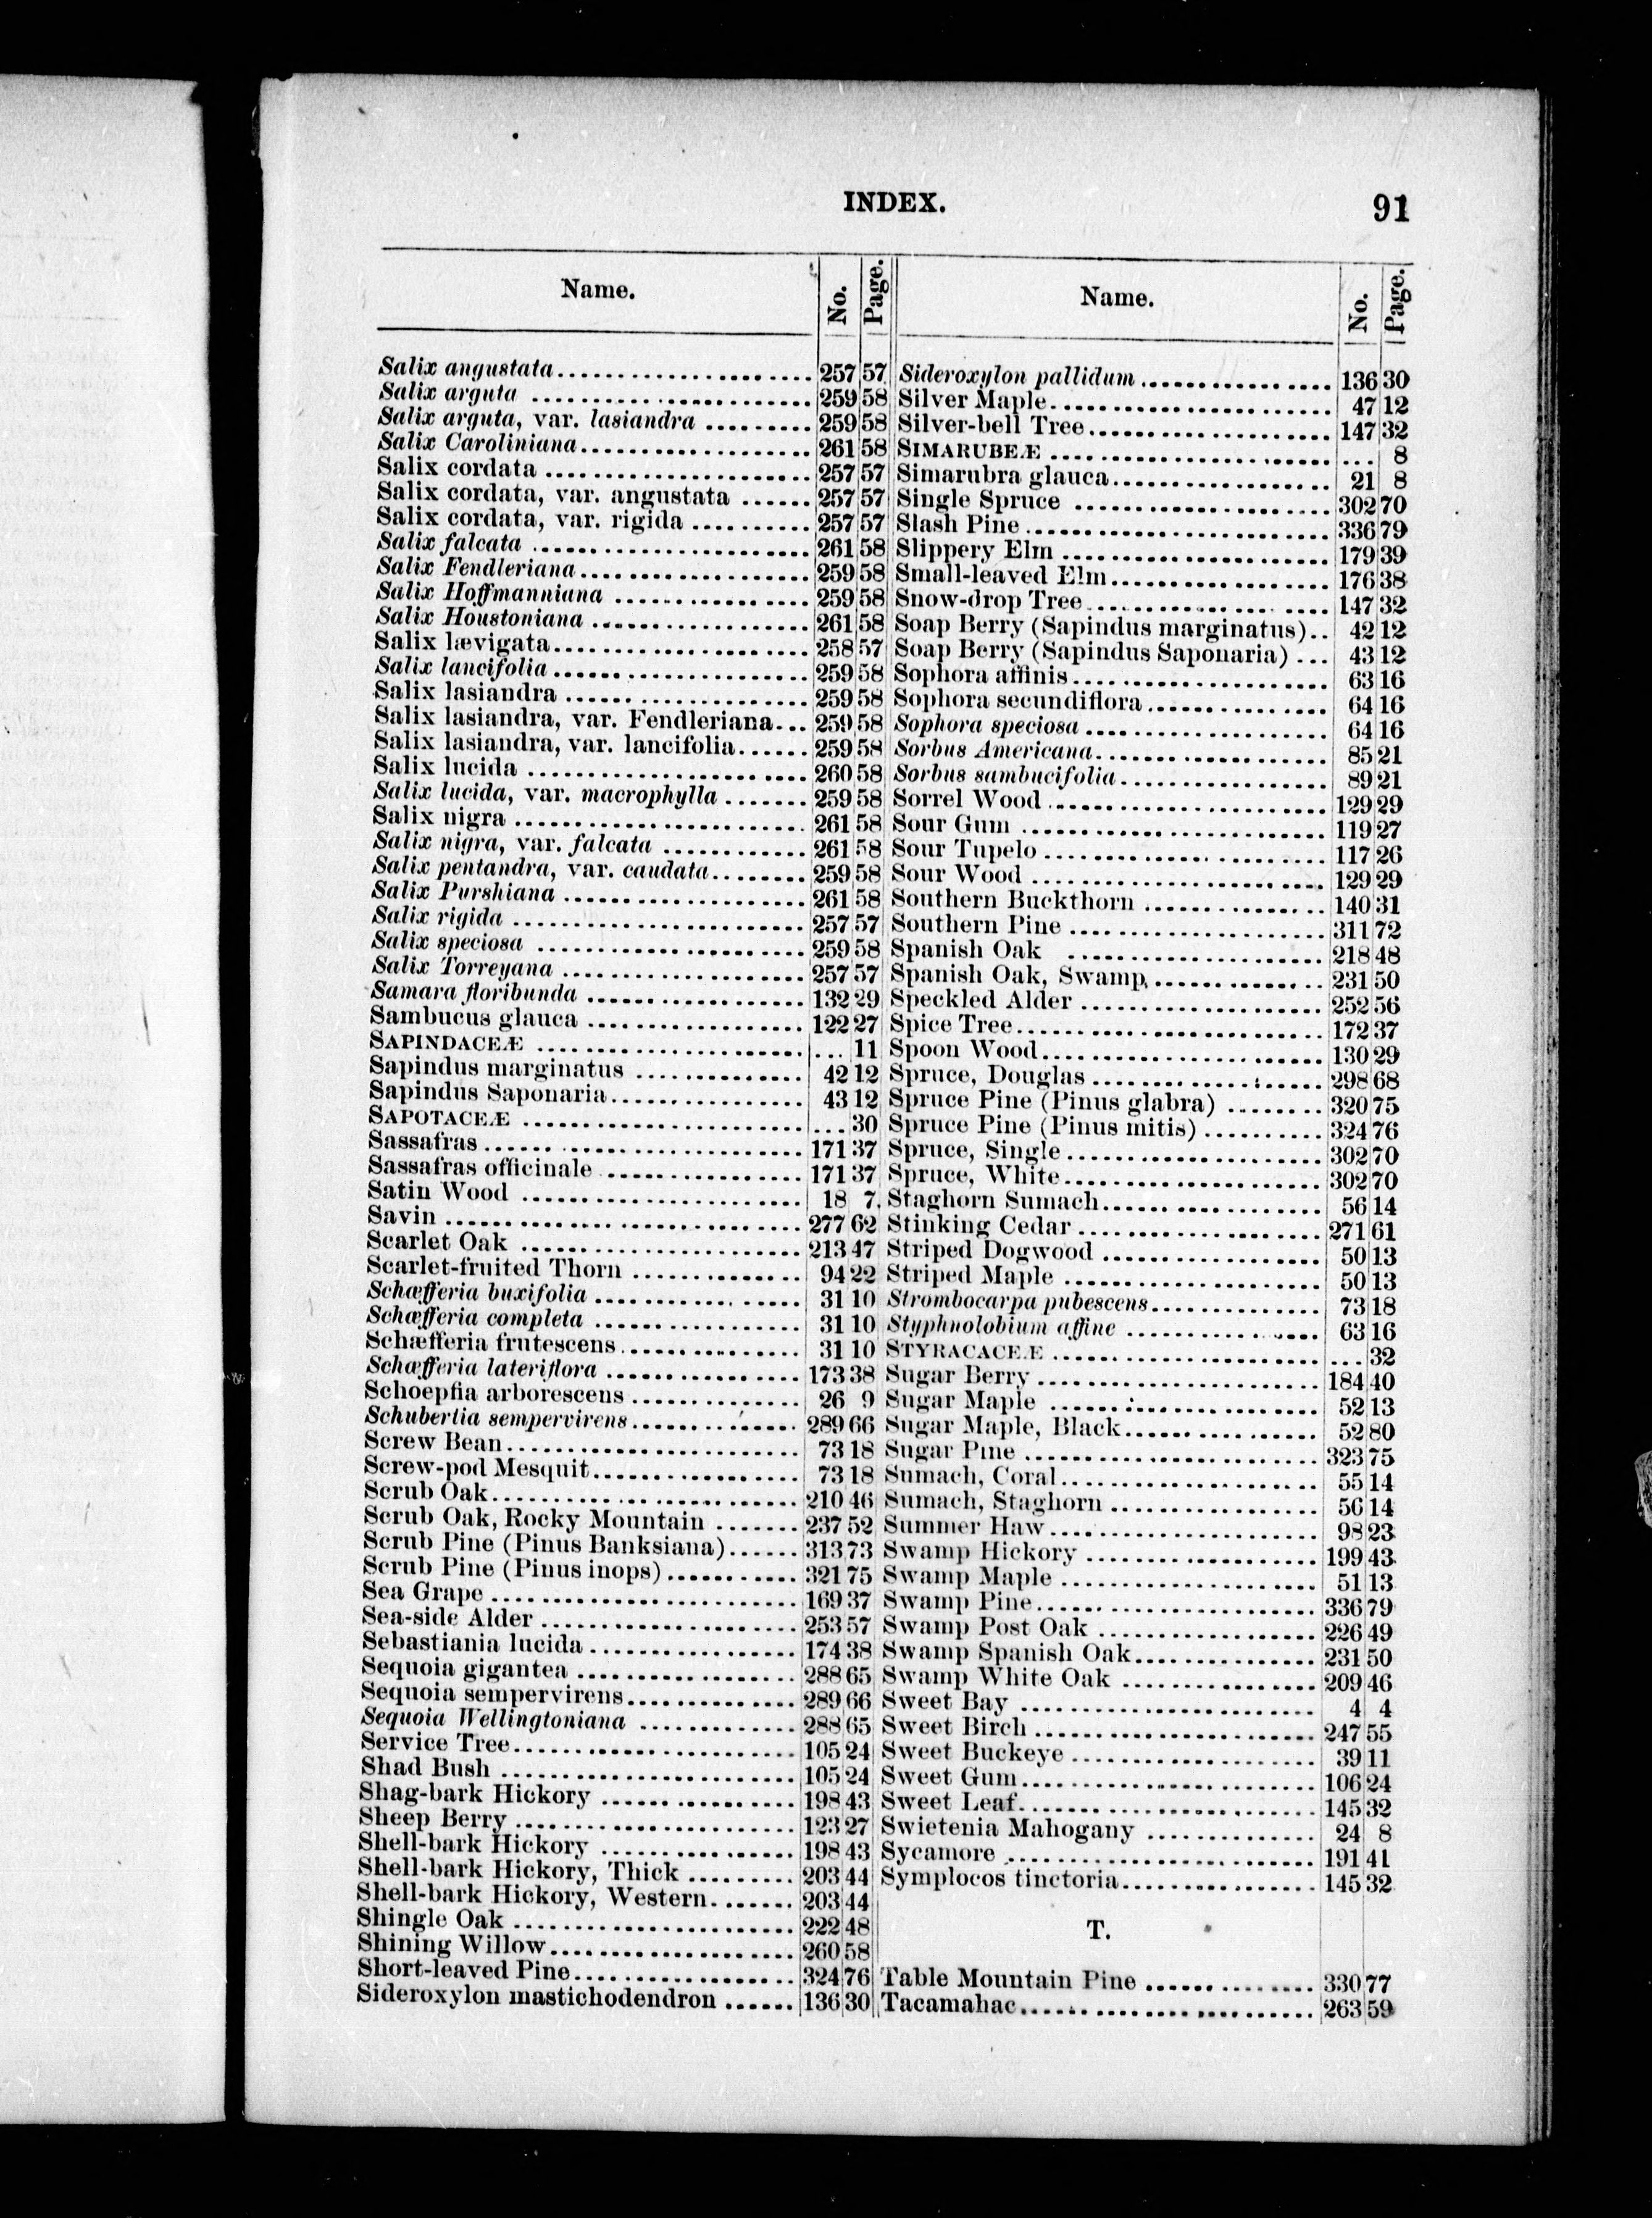 INDEX.
91
Name. No. Page.
Salix angustata 257 57
Salix arguta 259 58
Salix arguta, var. lasiandra 259 58
Salix Caroliniana 261 58
Salix cordata 257 57
Salix cordata, var. angustata 257 57
Salix cordata, var. rigida 257 57
Salix falcata 261 58
Salix Fendleriana 259 58
Salix Hoffmanniana 259 58
Salix Houstoniana 261 58
Salix lævigata 258 57
Salix lancifolia 259 58
Salix lasiandra 259 58
Salix lasiandra, var. Fendleriana 259 58
Salix lasiandra, var. lancifolia 259 58
Salix lucida 260 58
Salix lucida, var. macrophylla 259 58
Salix nigra 261 58
Salix nigra, var. falcata 261 58
Salix pentandra, var. caudata 259 58
Salix Purshiana 261 58
Salix rigida 257 57
Salix speciosa 259 58
Salix Torreyana 257 57
Samara floribunda 132 29
Sambucus glauca 122 27
SAPINDACEÆ ... 11
Sapindus marginatus 42 12
Sapindus Saponaria 43 12
SAPOTACEÆ ... 30
Sassafras 171 37
Sassafras officinale 171 37
Satin Wood 18 7
Savin 277 62
Scarlet Oak 213 47
Scarlet-fruited Thorn 94 22
Schæfferia buxifolia 31 10
Schæfferia completa 31 10
Schæfferia frutescens 31 10
Schæfferia lateriflora 173 38
Schoepfia arborescens 26 9
Schubertia sempervirens 289 66
Screw Bean 73 18
Screw-pod Mesquit 73 18
Scrub Oak 210 46
Scrub Oak, Rocky Mountain 237 52
Scrub Pine (Pinus Banksiana) 313 73
Scrub Pine (Pinus inops) 321 75
Sea Grape 169 37
Sea-side Alder 253 57
Sebastiania lucida 174 38
Sequoia gigantea 288 65
Sequoia sempervirens 289 66
Sequoia Wellingtoniana 288 65
Service Tree 105 24
Shad Bush 105 24
Shag-bark Hickory 198 43
Sheep Berry 123 27
Shell-bark Hickory 198 43
Shell-bark Hickory, Thick 203 44
Shell-bark Hickory, Western 203 44
Shingle Oak 222 48
Shining Willow 260 58
Short-leaved Pine 324 76
Sideroxylon mastichodendron 136 30
Name. No. Page.
Sideroxylon pallidum 136 30
Silver Maple 47 12
Silver-bell Tree 147 32
SIMARUBEÆ ... 8
Simarubra glauca 21 8
Single Spruce 302 70
Slash Pine 336 79
Slippery Elm 179 39
Small-leaved Elm 176 38
Snow-drop Tree 147 32
Soap Berry (Sapindus marginatus) 42 12
Soap Berry (Sapindus Saponaria) 43 12
Sophora affinis 63 16
Sophora secundiflora 64 16
Sophora speciosa 64 16
Sorbus Americana 85 21
Sorbus sambucifolia 89 21
Sorrel Wood 129 29
Sour Gum 119 27
Sour Tupelo 117 26
Sour Wood 129 29
Southern Buckthorn 140 31
Southern Pine 311 72
Spanish Oak 218 48
Spanish Oak, Swamp 231 50
Speckled Alder 252 56
Spice Tree 172 37
Spoon Wood 130 29
Spruce, Douglas 298 68
Spruce Pine (Pinus glabra) 320 75
Spruce Pine (Pinus mitis) 324 76
Spruce, Single 302 70
Spruce, White 302 70
Staghorn Sumach 56 14
Stinking Cedar 271 61
Striped Dogwood 50 13
Striped Maple 50 13
Strombocarpa pubescens 73 18
Styphnolobium affine 63 16
STYRACACEÆ ... 32
Sugar Berry 184 40
Sugar Maple 52 13
Sugar Maple, Black 52 80
Sugar Pine 323 75
Sumach, Coral 55 14
Sumach, Staghorn 56 14
Summer Haw 98 23
Swamp Hickory 199 43
Swamp Maple 51 13
Swamp Pine 336 79
Swamp Post Oak 226 49
Swamp Spanish Oak 231 50
Swamp White Oak 209 46
Sweet Bay 4 4
Sweet Birch 247 55
Sweet Buckeye 39 11
Sweet Gum 106 24
Sweet Leaf 145 32
Swietenia Mahogany 24 8
Sycamore 191 41
Symplocos tinctoria 145 32
T.
Table Mountain Pine 330 77
Tacamahac 263 59